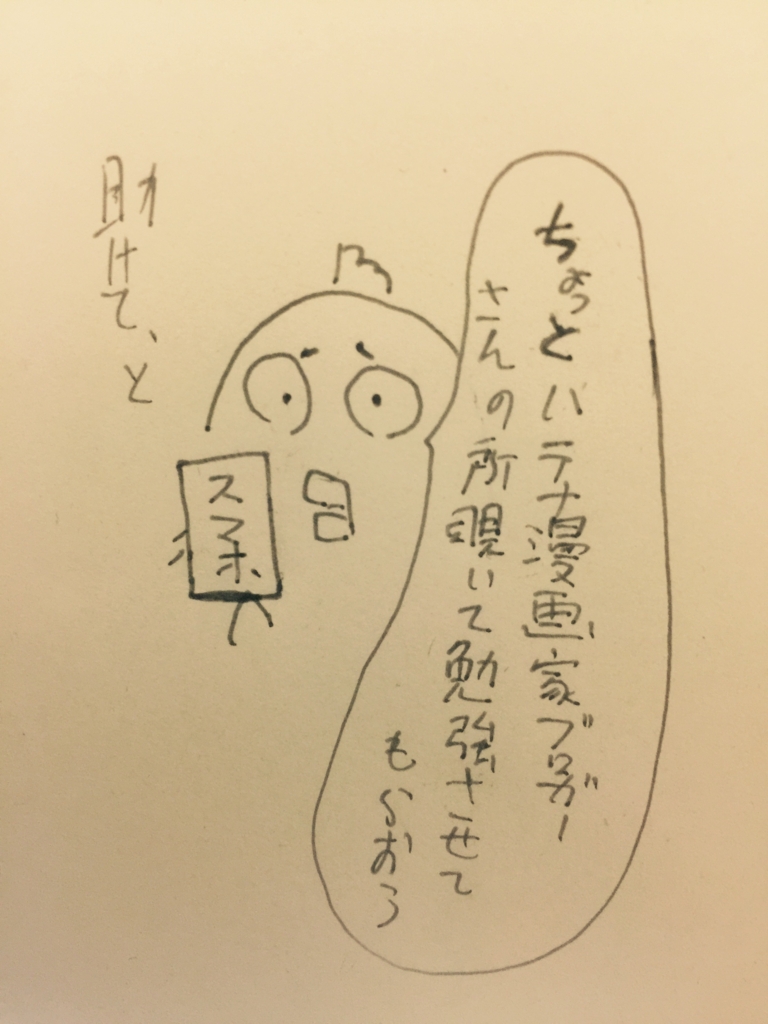 ちょっとハテナ漫画家ブロガー
さんの所覗いて勉強させて
もらおう
スマホ
助けて、と